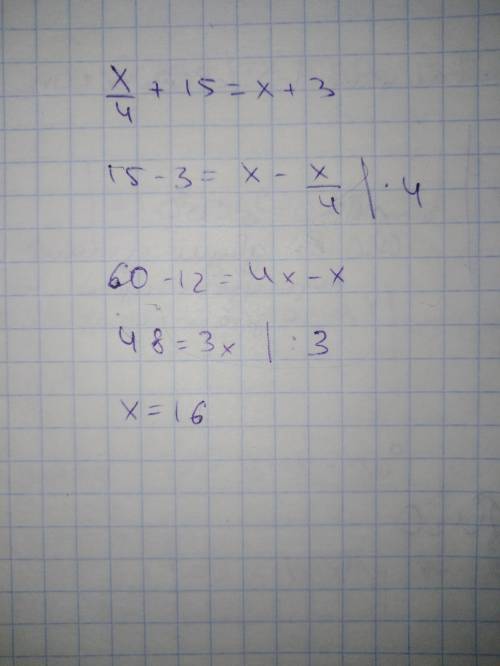 x/4 + 15 = x + 3
15 - 3 = x - x/4 | · 4
60 - 12 = 4x - x
48 = 3x | : 3
x = 16